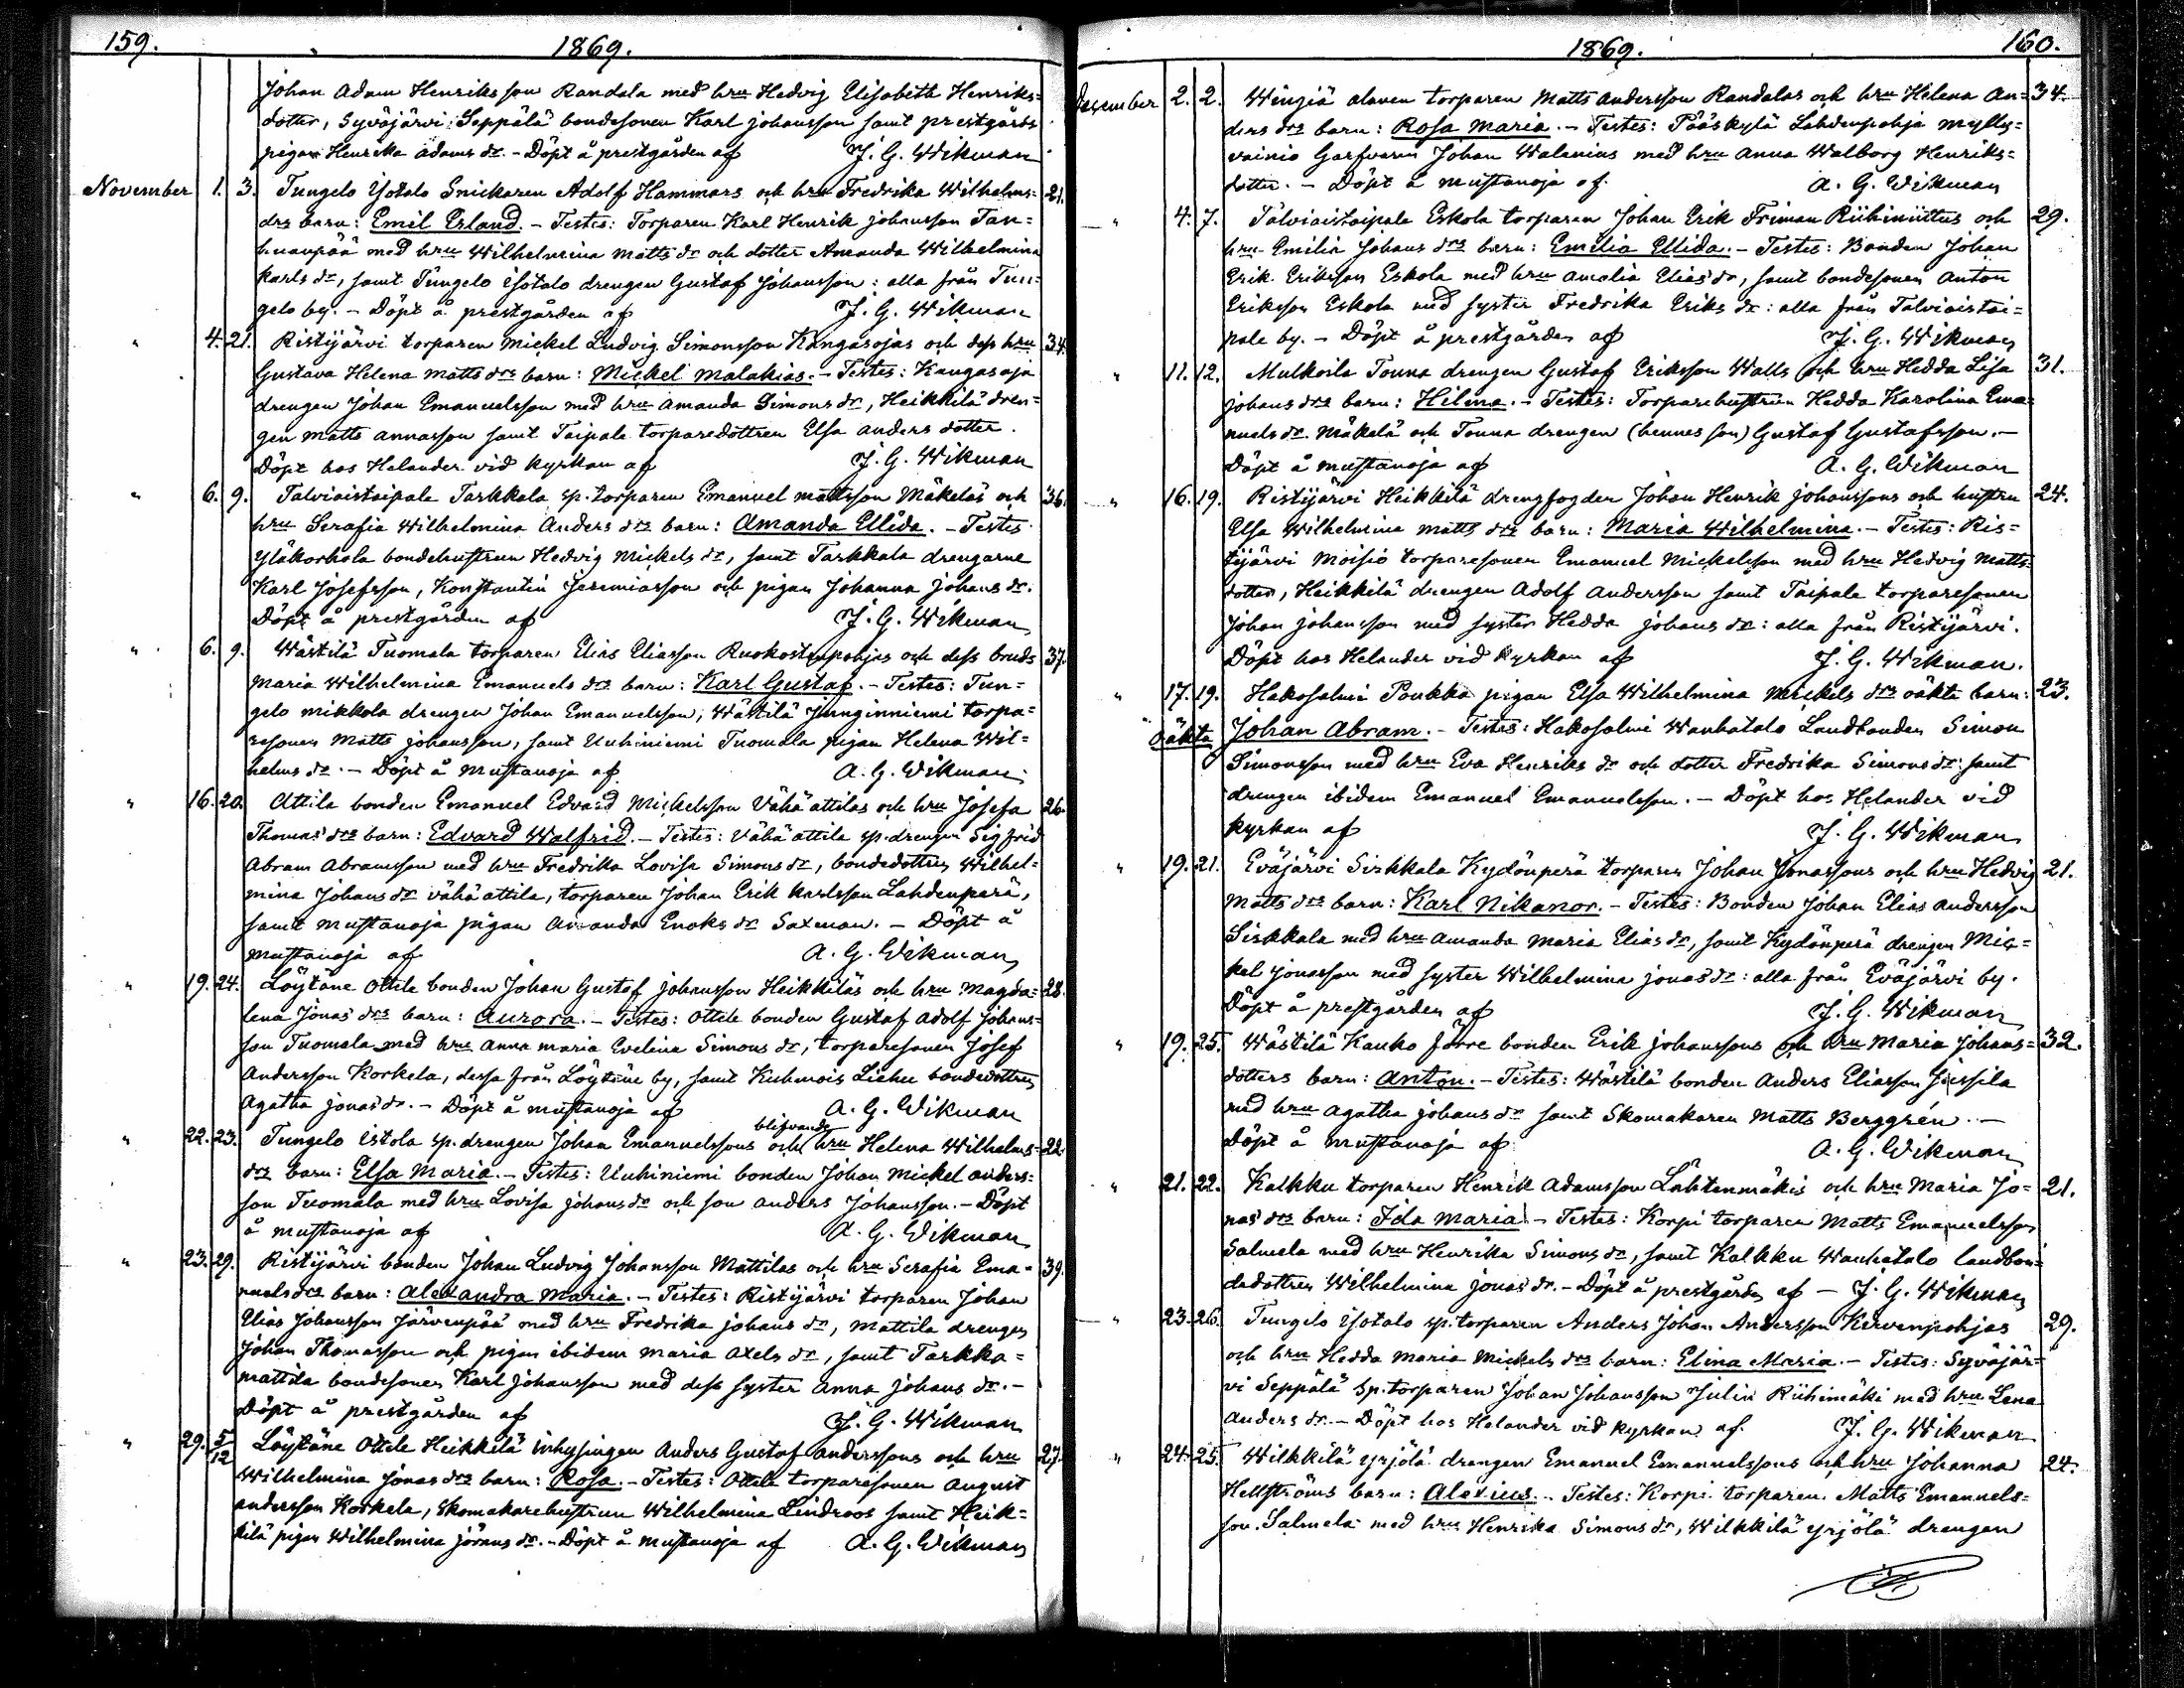 159.
1869.
Johan Adam Henriksson Randala med hru Hedvig Elisabeth Henriks=
dotter, Syväjärvi Seppälä bondesonen Karl Johansson samt prestgårds
pigan Henrika Adams dr. - Döpt å prestgården af J. G. Wikman
November 1. 3. Tungelo Yotalo Snickaren Adolf Hammars och hru Fredrika Wilhelms= 21.
drs barn: Emil Erland. - Testes: Torparen Karl Henrik Johansson Tan=
huanpää med hru Wilhelmina Matts dr och dotter Amanda Wilhelmina
Karls dr, samt Tungelo Isotalo drengen Gustaf Johansson: alla från Tun=
gelo by. - Döpt å prestgården af J. G. Wikman
" 4. 21. Ristijärvi torparen Mickel Ludvig Simonsson Kangasojas och dess hru 34.
Gustava Helena Matts drs barn: Mickel Malakias. - Testes: Kangasoja
drengen Johan Emanuelsson med hru Amanda Simons dr, Heikkilä dren=
gen Matts Annasson samt Taipale torparedottren Elsa Anders dotter.
Döpt hos Helander vid kyrkan af J. G. Wikman
" 6. 9. Talviaistaipale Tarkkala sp. torparen Emanuel Mattsson Mäkeläs och 36.
hru Serafia Wilhelmina Anders drs barn: Amanda Ellida. - Testes
Yläkorkola bondehustrun Hedvig Mickels dr, samt Tarkkala drengarne
Karl Josefsson, Konstantin Jeremiasson och pigan Johanna Johans dr.
Döpt å prestgården af J. G. Wikman
" 6. 9. Wästilä Tuomala torparen Elias Eliasson Ruokostenpohjas och dess bruds 37.
Maria Wilhelmina Emanuels drs barn: Karl Gustaf. - Testes: Tun=
gelo Mikkola drengen Johan Emanuelsson, Wästilä Junginniemi torpa=
resonen Matts Johansson, samt Unhiniemi Tuomala pigan Helena Wil=
helms dr. - Döpt å Mustanoja af A. G. Wikman
" 16. 20. Attila bonden Emanuel Edvard Mickelsson Vähäattilas och hru Josefa 26.
Thomas drs barn: Edvard Walfrid. - Testes: Vähäattila sp. drengen Sigfrid
Abram Abramsson med hru Fredrika Lovisa Simons dr, bondedottren Wilhel=
mina Johans dr Vähäattila, torparen Johan Erik Karlsson Lahdenperä,
samt Mustanoja pigan Amanda Enoks dr Saxman. - Döpt å
Mustanoja af A. G. Wikman
" 19. 24. Löytäne Ottile bonden Johan Gustaf Johansson Heikkiläs och hru Magda= 28.
lena Jonas drs barn: Aurora. - Testes: Ottile bonden Gustaf Adolf Johans=
son Tuomala med hru Anna Maria Evelina Simons dr, torparesonen Josef
Andersson Korkela, dessa från Löytäne by, samt Kuhmois Liehu bondedottren
Agatha Jonas dr. - Döpt å Mustanoja af A. G. Wikman
blifvande
" 22. 23. Tungelo Istola sp. drengen Johan Emanuelssons och hru Helena Wilhelms= 22.
drs barn: Elsa Maria. - Testes: Unhiniemi bonden Johan Mickel Anders=
son Tuomala med hru Lovisa Johans dr och son Anders Johansson. - Döpt
å Mustanoja af A. G. Wikman
" 23. 29. Ristijärvi bonden Johan Ludvig Johansson Mattilas och hru Serafia Ema= 39.
nuels drs barn: Alexandra Maria. - Testes: Ristijärvi torparen Johan
Elias Johansson Järvenpää med hru Fredrika Johans dr, Mattila drengen
Johan Thomasson och pigan ibidem Maria Axels dr, samt Tarkka=
mattila bondesonen Karl Johansson med dess syster Anna Johans dr. -
Döpt å prestgården af J. G. Wikman
" 29. 5/12 Löytäne Ottile Heikkilä inhysingen Anders Gustaf Anderssons och hru 27.
Wilhelmina Jonas drs barn: Rosa. - Testes: Ottile torparesonen August
Andersson Korkela, Skomakarehustrun Wilhelmina Lindroos samt Heik=
kilä pigan Wilhelmina Jörans dr. - Döpt å Mustanoja af A. G. Wikman
1869.
160.
December 2. 2. Wingiä Alanen torparen Matts Andersson Randalas och hru Helena An= 34.
ders drs barn: Rosa Maria. - Testes: Pääskylä Lahdenpohja Mylly=
vainio Garfvaren Johan Walenius med hru Anna Walborg Henriks=
dotter. - Döpt å Mustanoja af. A. G. Wikman
" 4. 7. Talviaistaipale Eskola torparen Johan Erik Friman Riihiniittus och 29.
hru Emilia Johans drs barn: Emelia Ellida. - Testes: Bonden Johan
Erik Eriksson Eskola med hru Amalia Elias dr, samt bondesonen Anton
Eriksson Eskola med syster Fredrika Eriks dr: alla från Talviaistai=
pale by. - Döpt å prestgården af J. G. Wikman
" 11. 12. Mulkoila Touna drengen Gustaf Eriksson Walls och hru Hedda Lisa 31.
Johans drs barn: Hilma. - Testes: Torparehustrun Hedda Karolina Ema=
nuels dr Mäkelä och Touna drengen (hennes son) Gustaf Gustafsson. -
Döpt å Mustanoja af A. G. Wikman
" 16. 19. Ristijärvi Heikkilä drengfogden Johan Henrik Johanssons och hustru 24.
Elsa Wilhelmina Matts drs barn: Maria Wilhelmina. - Testes: Ris=
tijärvi Moisio torparesonen Emanuel Mickelsson med hru Hedvig Matts=
dotter, Heikkilä drengen Adolf Andersson samt Taipale torparesonen
Johan Johansson med syster Hedda Johans dr: alla från Ristijärvi.
Döpt hos Helander vid kyrkan af J. G. Wikman.
" 17. 19. Hakosalmi Poukka pigan Elsa Wilhelmina Mickels drs oäkta barn: 23.
Oäkta Johan Abram. - Testes: Hakosalmi Wanhatalo Landbonden Simon
Simonsson med hru Eva Henriks dr och dotter Fredrika Simons dr samt
drengen ibidem Emanuel Emanuelsson. - Döpt hos Helander vid
kyrkan af J. G. Wikman
" 19. 21. Eväjärvi Sirkkala Kydönperä torparen Johan Jonassons och hru Hedvig 21.
Matts drs barn: Karl Nikanor. - Testes: Bonden Johan Elias Andersson
Sirkkala med hru Amanda Maria Elias dr, samt Kydönperä drengen Mic=
kel Jonasson med syster Wilhelmina Jonas dr: alla från Eväjärvi by.
Döpt å prestgården af J. G. Wikman
" 19. 25. Wästilä Kauko Jörre bonden Erik Johanssons och hru Maria Johans= 32.
dotters barn: Anton. - Testes: Wästilä bonden Anders Eliasson Jussila
med hru Agatha Johans dr samt Skomakaren Matts Berggrén. -
Döpt å Mustanoja af A. G. Wikman
" 21. 22. Kalkku torparen Henrik Adamsson Lähtenmäkis och hru Maria Jo= 21.
nas drs barn: Ida Maria - Testes: Korpi torparen Matts Emanuelsson
Salmela med hru Henrika Simons dr, samt Kalkku Wanhatalo landbon=
dedottren Wilhelmina Jonas dr. - Döpt å prestgården af - J. G. Wikman
" 23. 26. Tungelo Yotalo sp. torparen Anders Johan Andersson Kervenpohjas 29.
och hru Hedda Maria Mickels drs barn: Elina Maria. - Testes: Syväjär=
vi Seppälä Sp. torparen Johan Johansson Julin Riihimäki med hru Lena
Anders dr. - Döpt hos Helander vid kyrkan af. J. G. Wikman
" 24. 25. Wilkkilä Yrjölä drengen Emanuel Emanuelssons och hru Johanna 24.
Hellströms barn: Alexius. - Testes: Korpi torparen Matts Emanuels=
son Salmela med hru Henrika Simons dr, Wilkkilä Yrjölä drengen